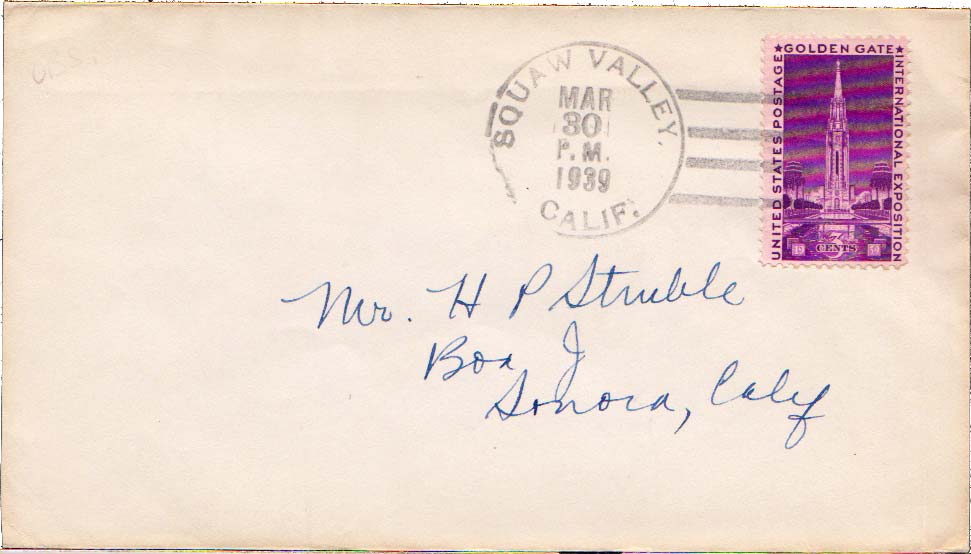 SQUAW VALLEY,
MAR
30
P. M.
1939
CALIF.
★GOLDEN GATE★
INTERNATIONAL EXPOSITION
UNITED STATES POSTAGE
19 3 39
CENTS
Mr. H P Struble
Box J
Sonora, Calif